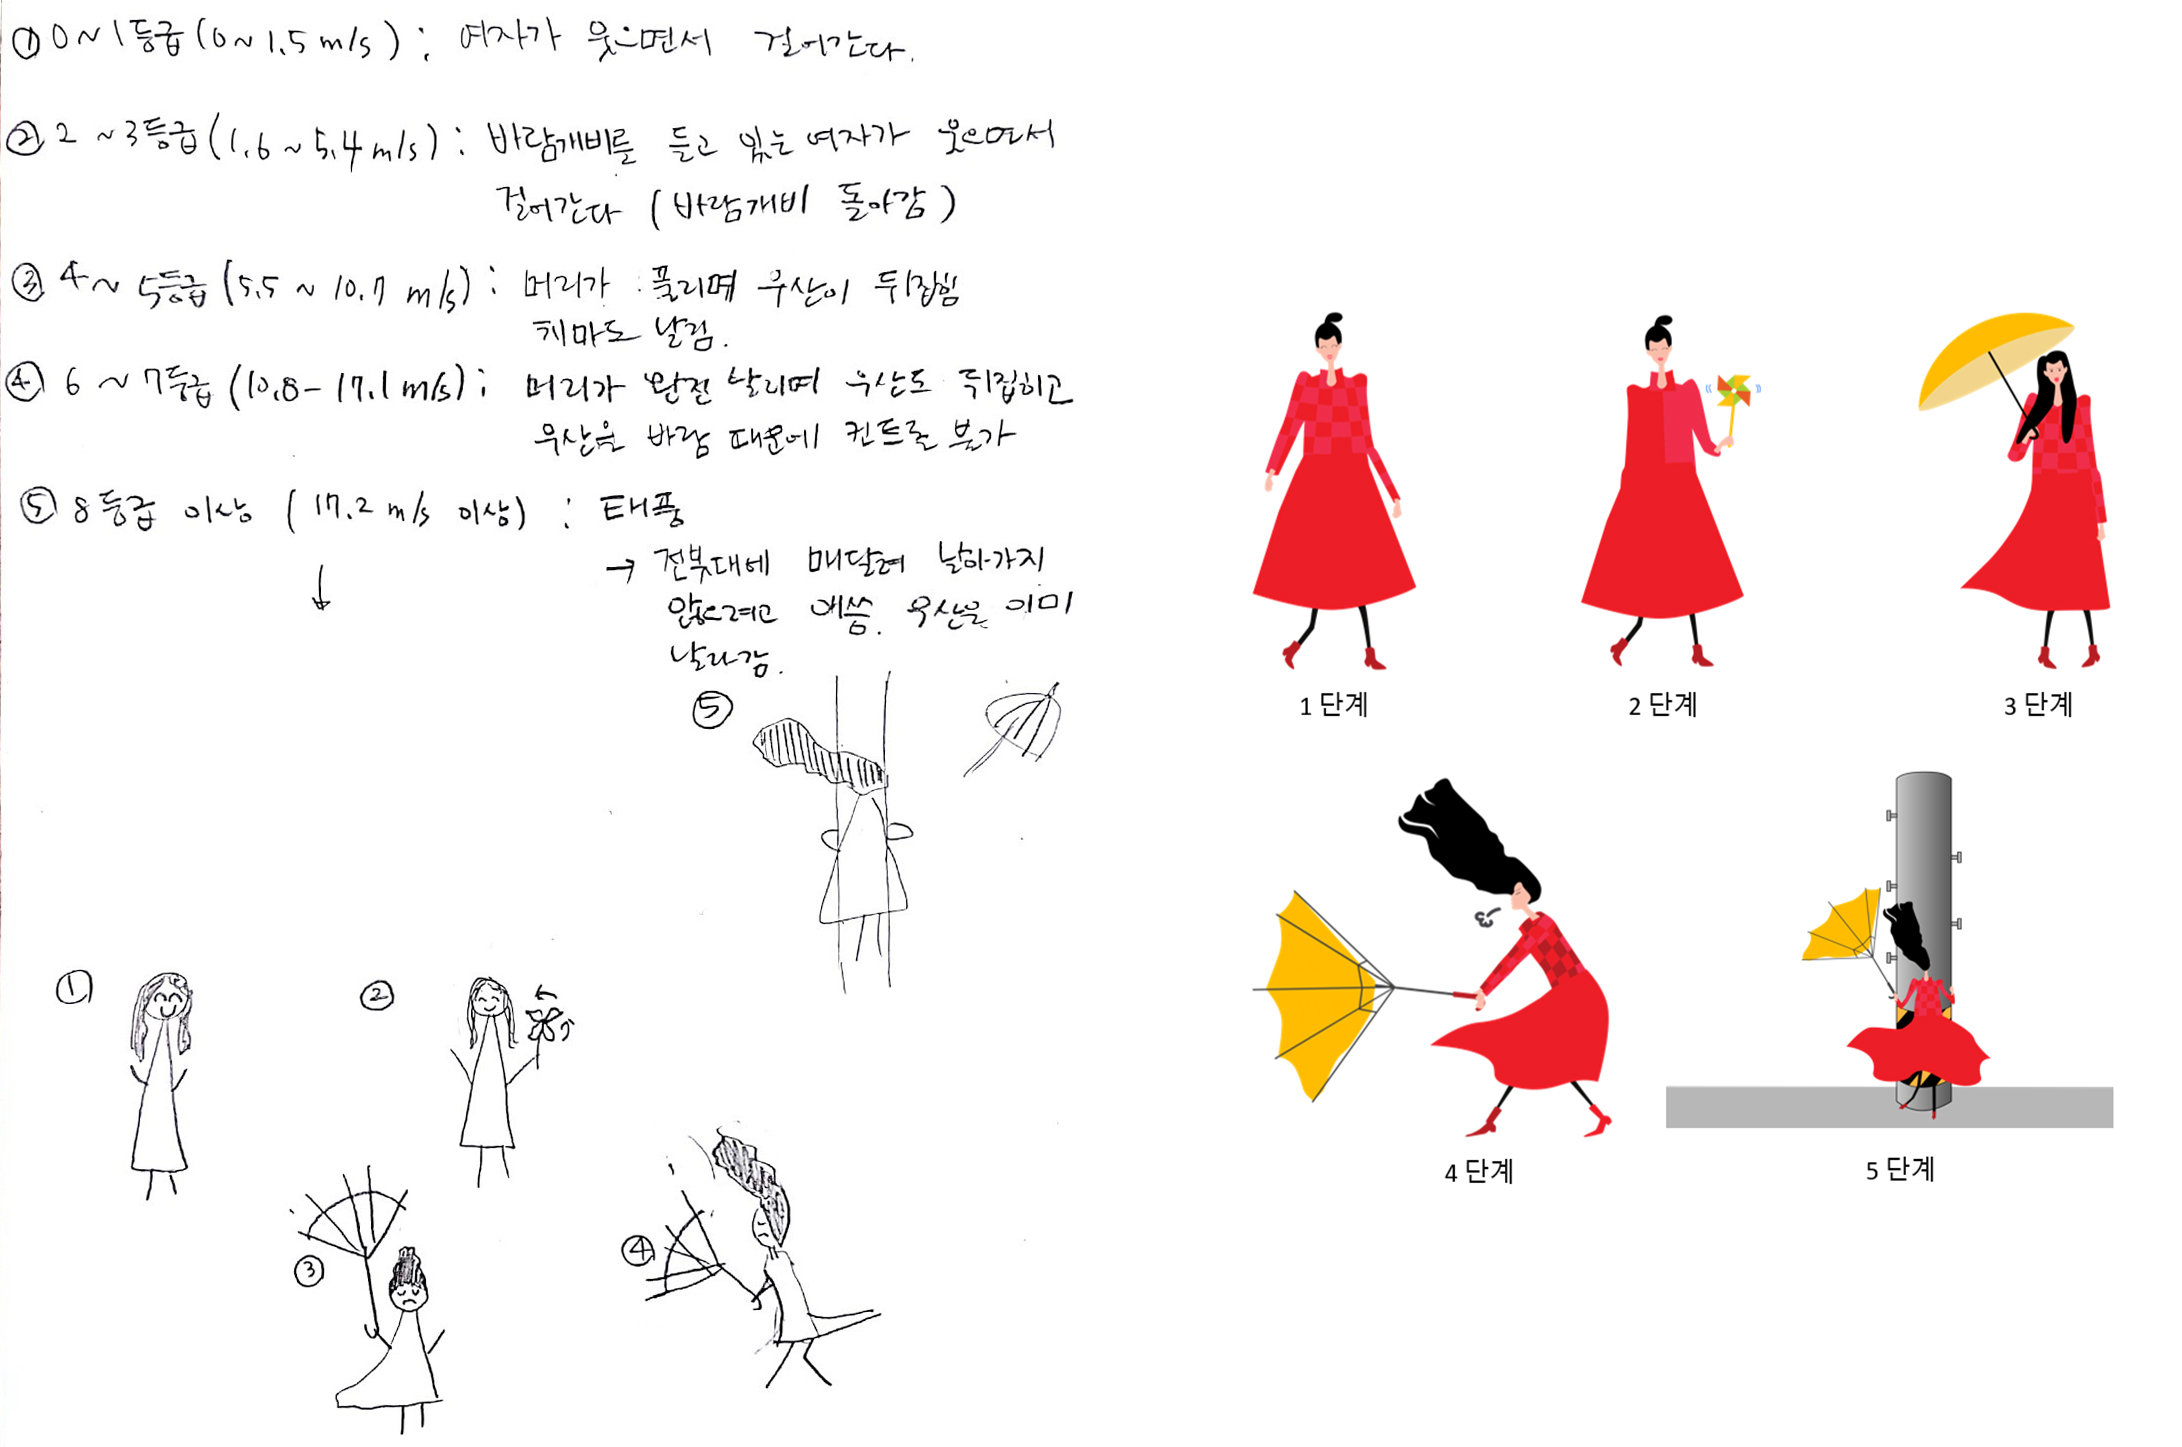 ① 0~1등급(0~1.5m/s) : 여자가 웃으면서 걸어간다.
② 2~3등급(1.6~5.4m/s) : 바람개비를 들고 있는 여자가 웃으면서
걸어간다 (바람개비 돌아감)
③ 4~5등급(5.5~10.7 m/s) : 머리가 풀리며 우산이 뒤집힘
치마도 날림.
④ 6~7등급(10.8-17.1m/s) : 머리가 완전 날리며 우산도 뒤집히고
우산은 바람 때문에 컨트롤 불가
⑤ 8등급 이상 (17.2 m/s 이상) : 태풍
→ 전봇대에 매달려 날아가지
않으려고 애씀. 우산은 이미
날라감.
⑤
①
②
③
④
1 단계
2 단계
3 단계
4 단계
5 단계